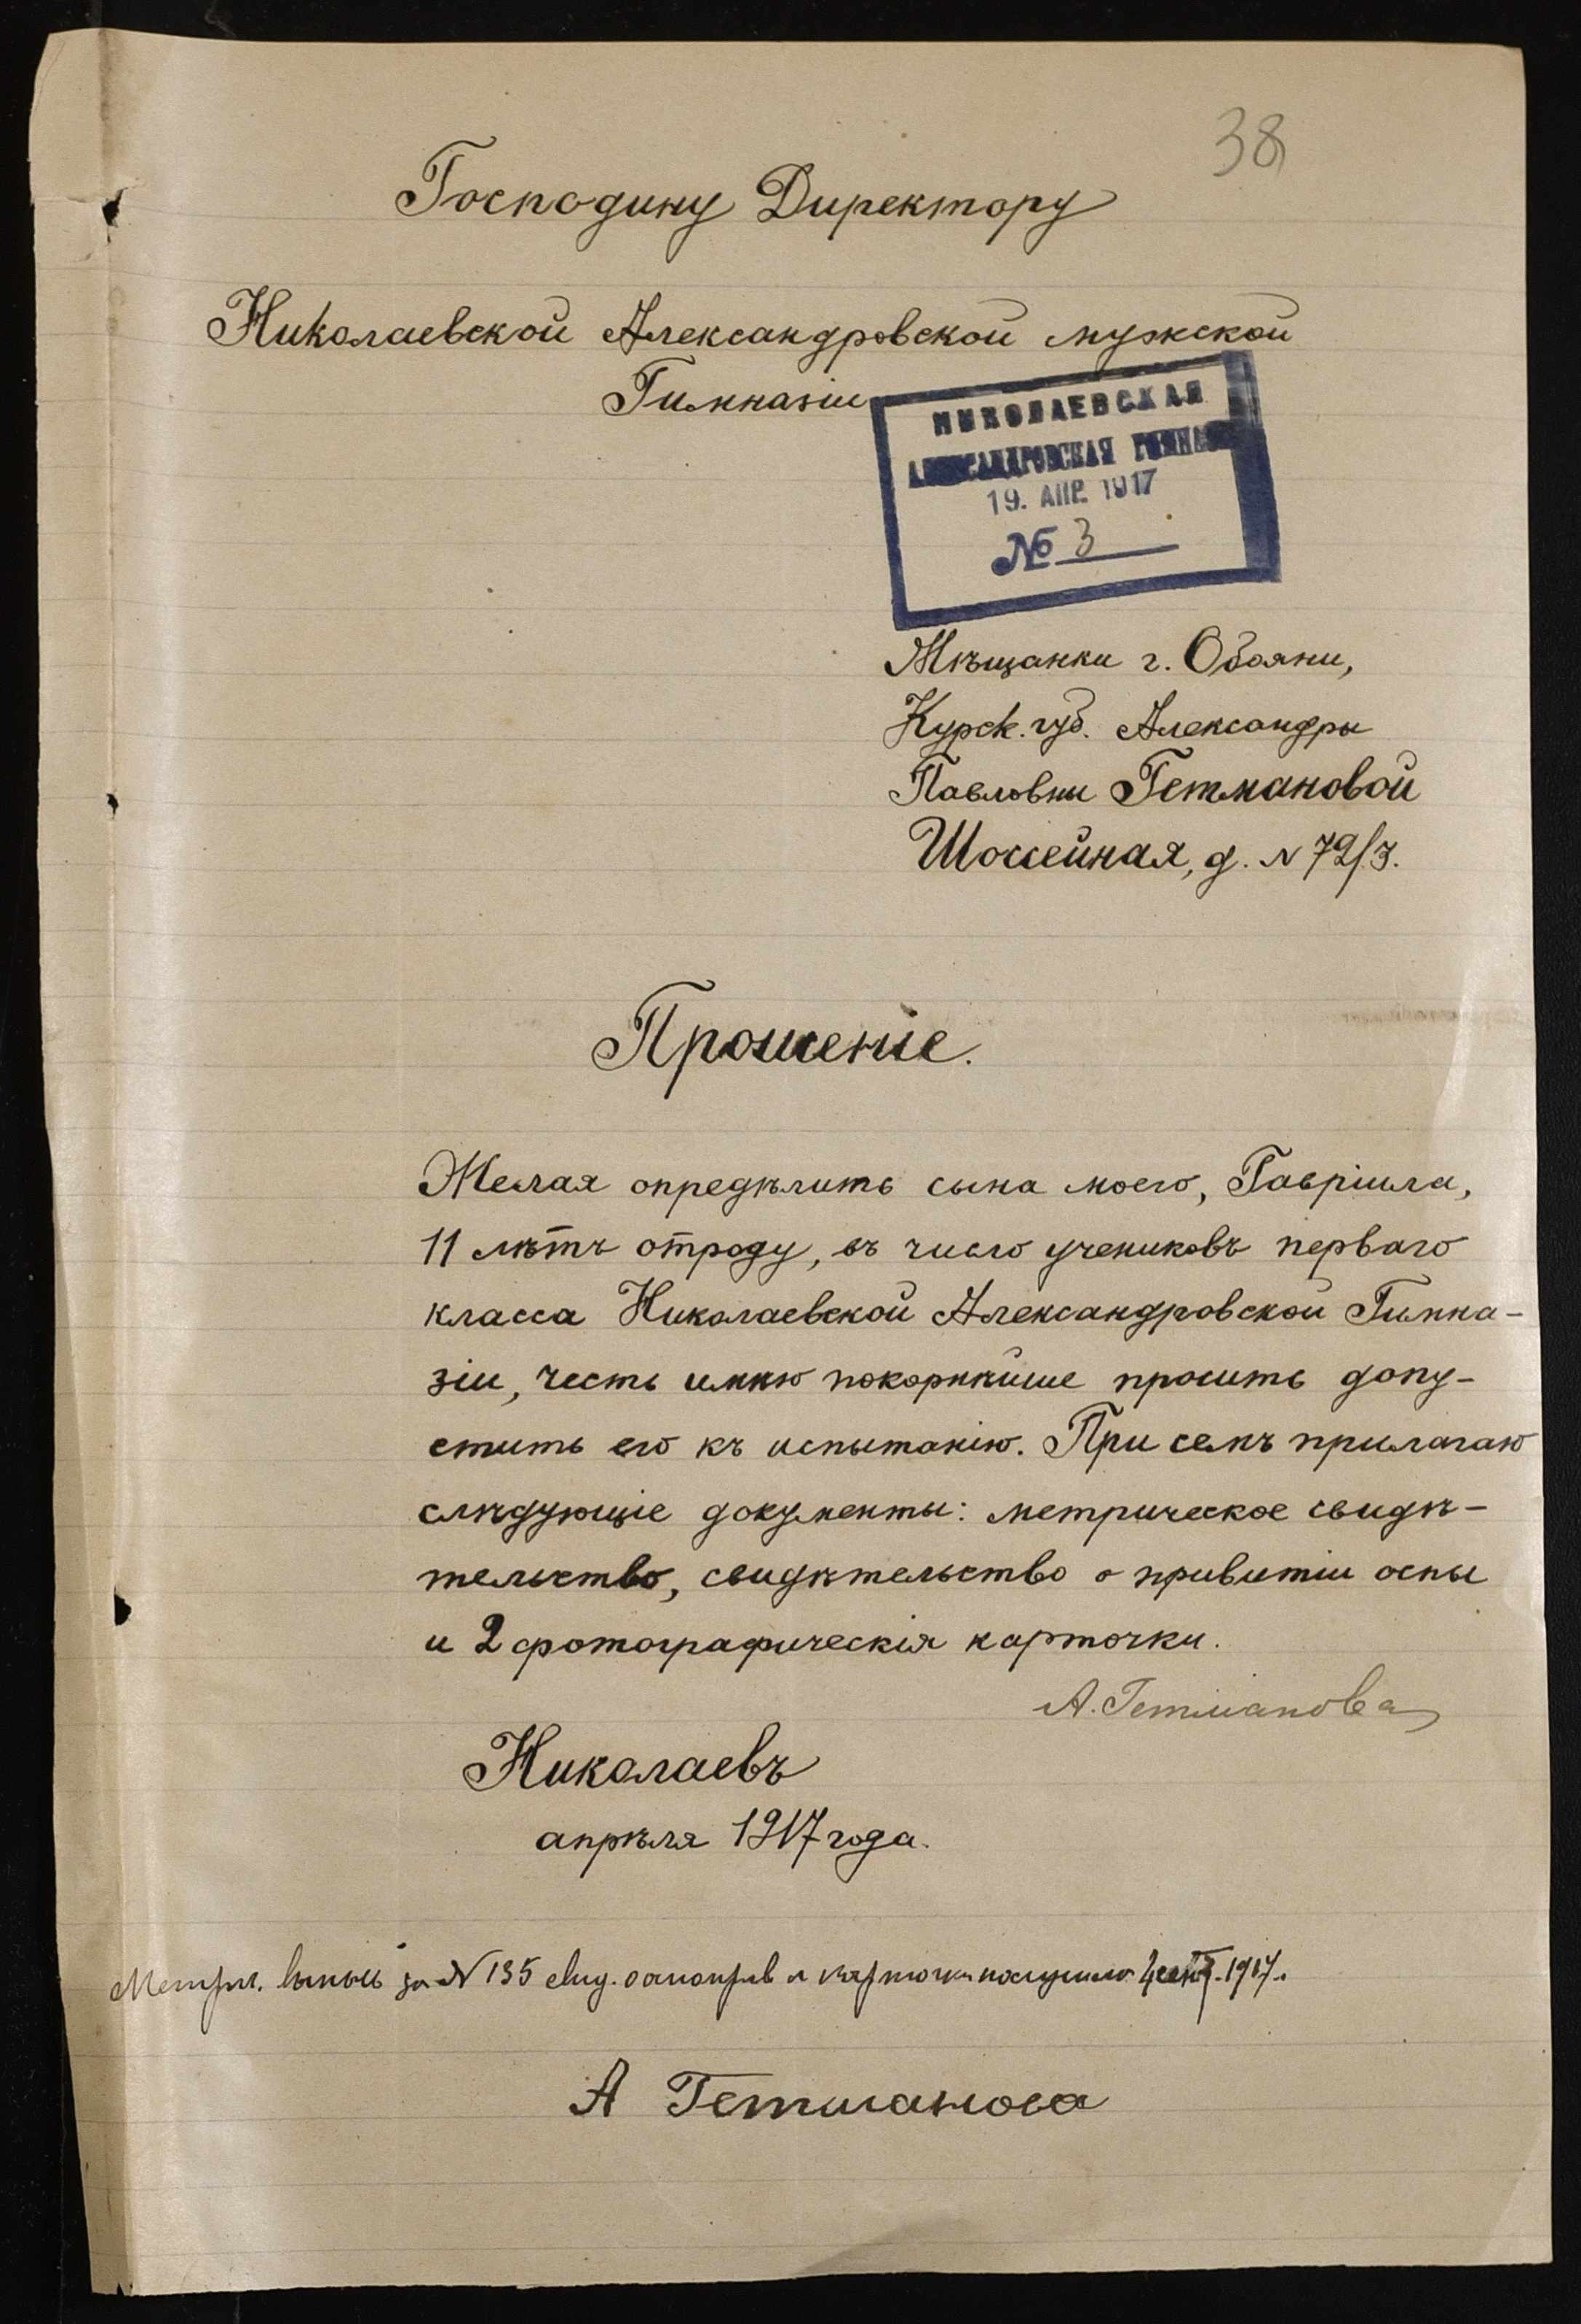 38
Господину Директору
Николаевской Александровской мужской
Гимназіи
НИКОЛАЕВСКАЯ
АЛЕКСАНДРОВСКАЯ ГИМНАЗІЯ
19. АПР. 1917
№ 3
Мѣщанки г. Обояни,
Курск. губ. Александры
Павловны Гетмановой
Шоссейная, д. N 72/3.
Прошеніе.
Желая опредѣлить сына моего, Гавріила,
11 лѣтъ отроду, въ число учениковъ перваго
класса Николаевской Александровской Гимна-
зіи, честь имѣю покорнѣйше просить допу-
стить его къ испытанію. При семъ прилагаю
слѣдующіе документы: метрическое свидѣ-
тельство, свидѣтельство о привитіи оспы
и 2 фотографическія карточки.
А. Гетманова
Николаевъ
апрѣля 1917 года.
Метрич. выпись за N 135 свид. о и карточки получила 4 сент. 1917 г.
А Гетманова